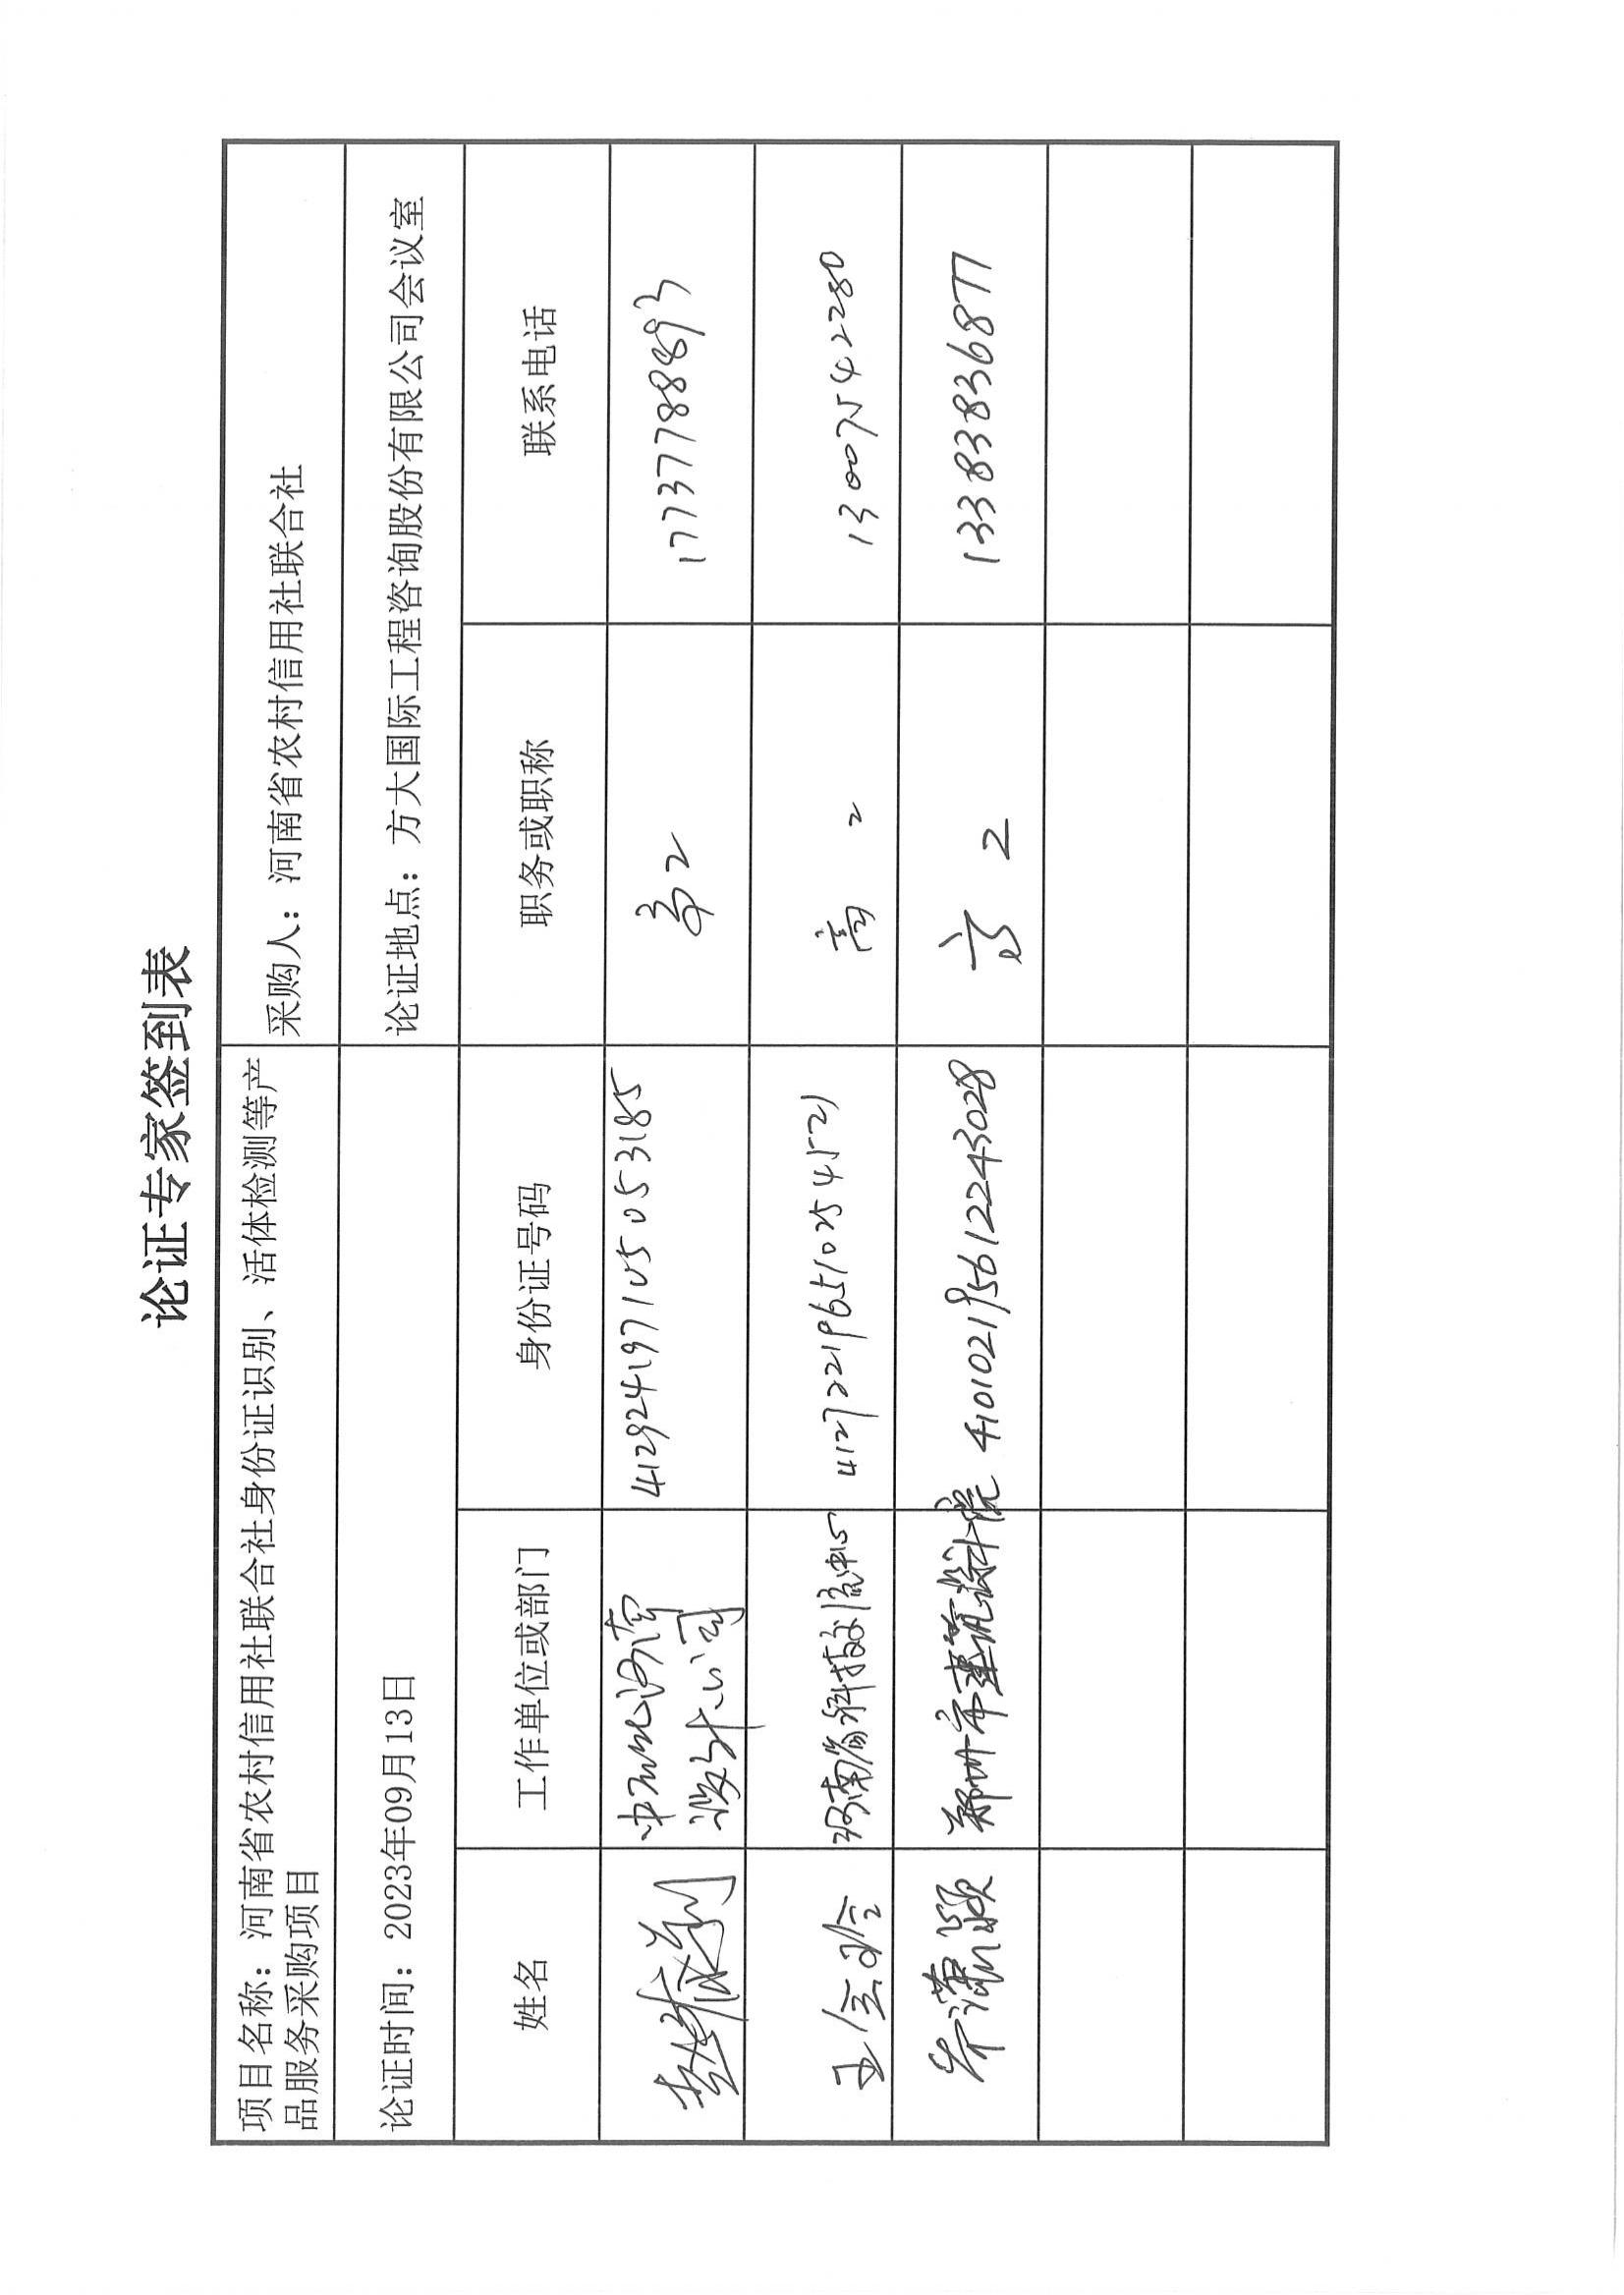 论证专家签到表
项目名称：河南省农村信用社联合社身份证识别、活体检测等产
品服务采购项目
采购人：河南省农村信用社联合社
论证时间：2023年09月13日
论证地点：方大国际工程咨询股份有限公司会议室
姓名 工作单位或部门 身份证号码 职务或职称 联系电话
河南
设计公司
412924197105053185
高工
17737788893
王金玲 河南省科技 412722196510254521 高工 13007542280
乔潇颍 郑州市建筑设计院 410102195612243028 高工 13383836877